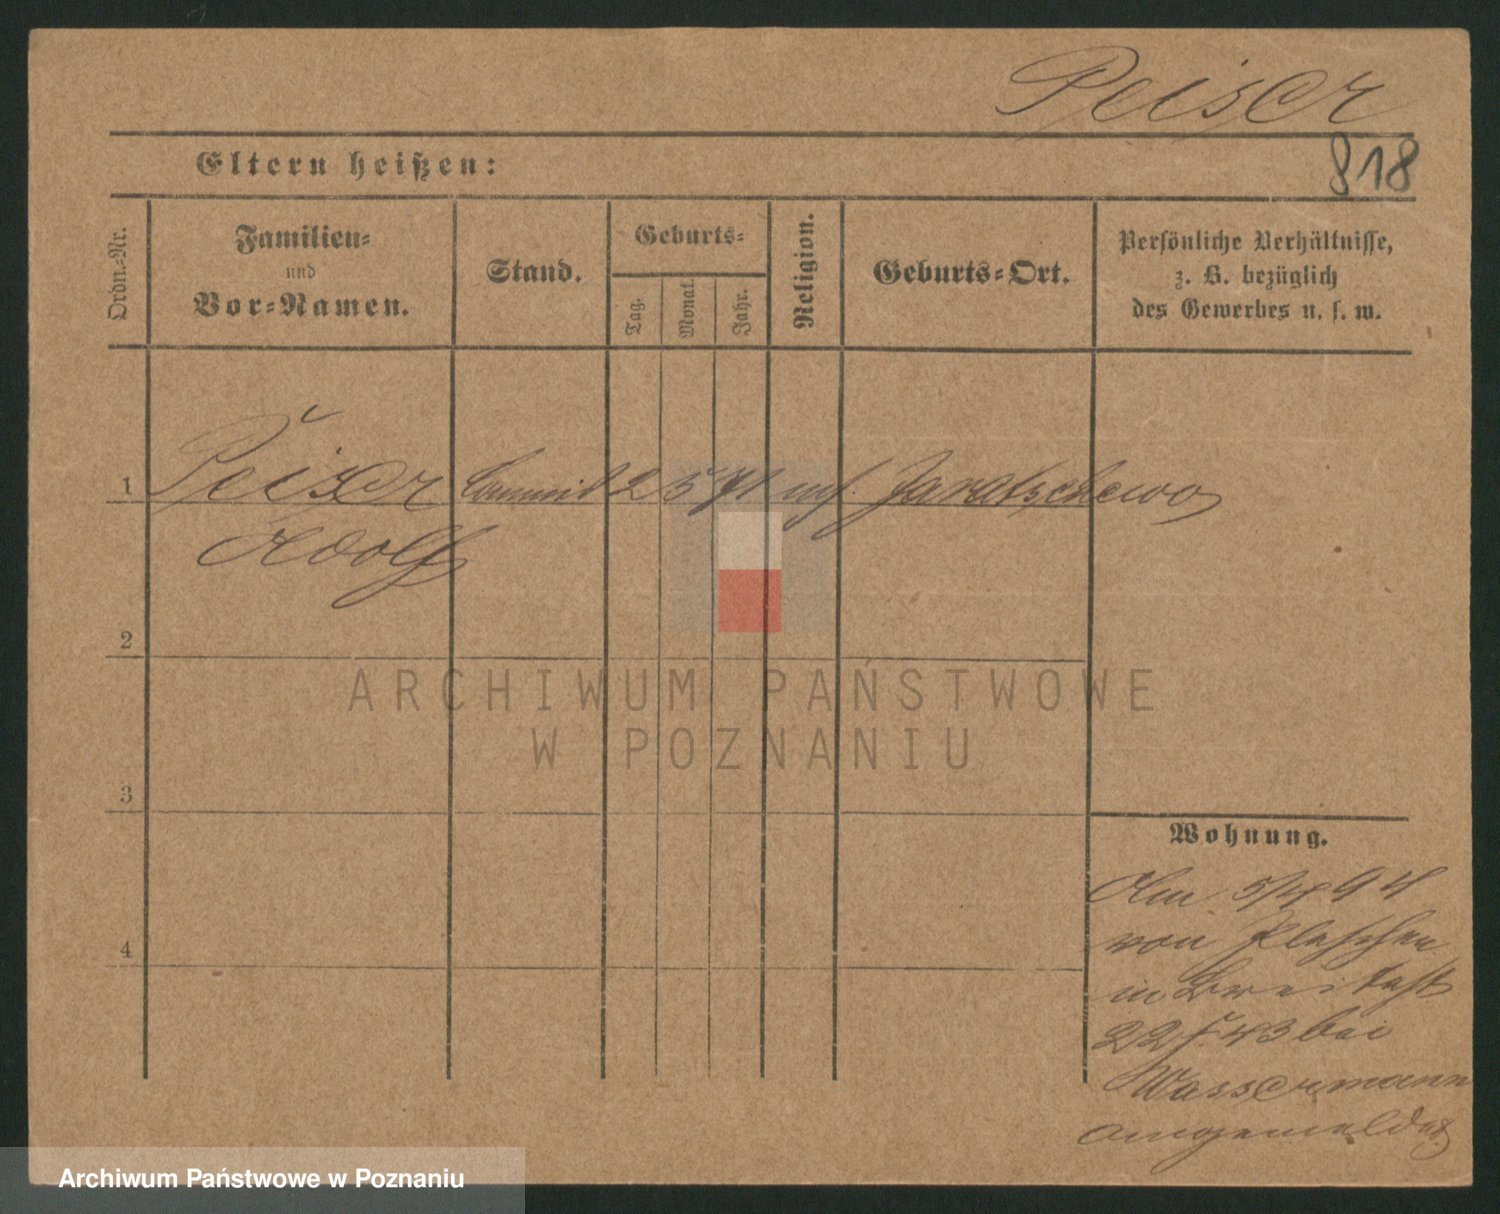 Peiser
Eltern heißen:
818
Ordn.-Nr.
Familien-
und
Vor-Namen.
Stand.
Geburts-
Tag.
Monat.
Jahr.
Religion.
Geburts-Ort.
Persönliche Verhältnisse,
z. B. bezüglich
des Gewerbes u. s. w.
1
Peiser
Commis
2
5
71
mos.
Jaratschewo
Adolf
2
ARCHIWUM PAŃSTWOWE
W POZNANIU
3
Wohnung.
Am 5/4 94
von Pleschen
in Breitestr
22 bei
4
Wassermann
angemeldet
Archiwum Państwowe w Poznaniu